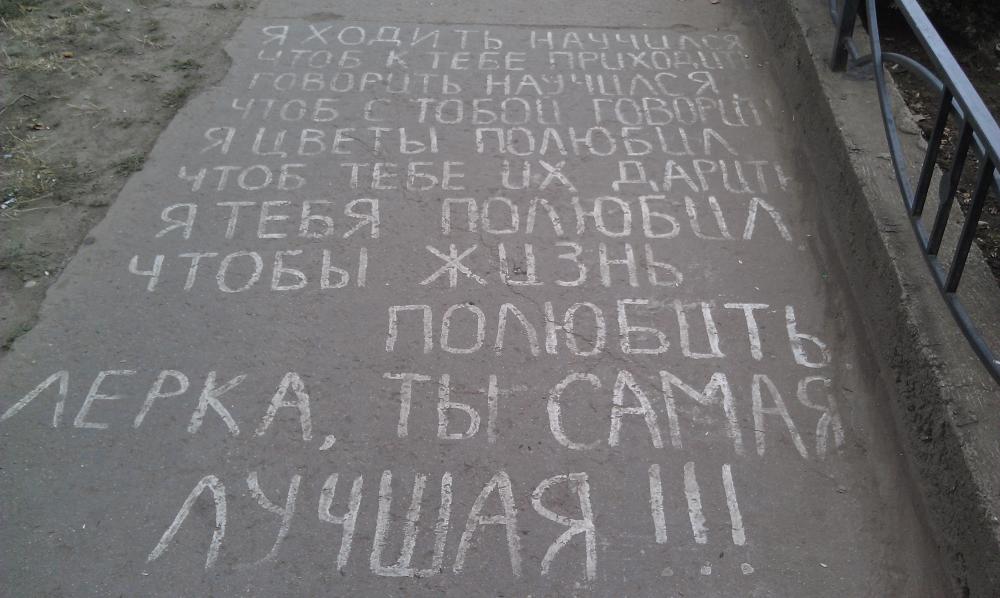 Я ХОДИТЬ НАУЧИЛСЯ
ЧТОБ К ТЕБЕ ПРИХОДИТЬ
ГОВОРИТЬ НАУЧИЛСЯ,
ЧТОБ С ТОБОЙ ГОВОРИТЬ
Я ЦВЕТЫ ПОЛЮБИЛ
ЧТОБ ТЕБЕ ИХ ДАРИТЬ
Я ТЕБЯ ПОЛЮБИЛ,
ЧТОБЫ ЖИЗНЬ
ПОЛЮБИТЬ
ЛЕРКА, ТЫ САМАЯ
ЛУЧШАЯ !!!